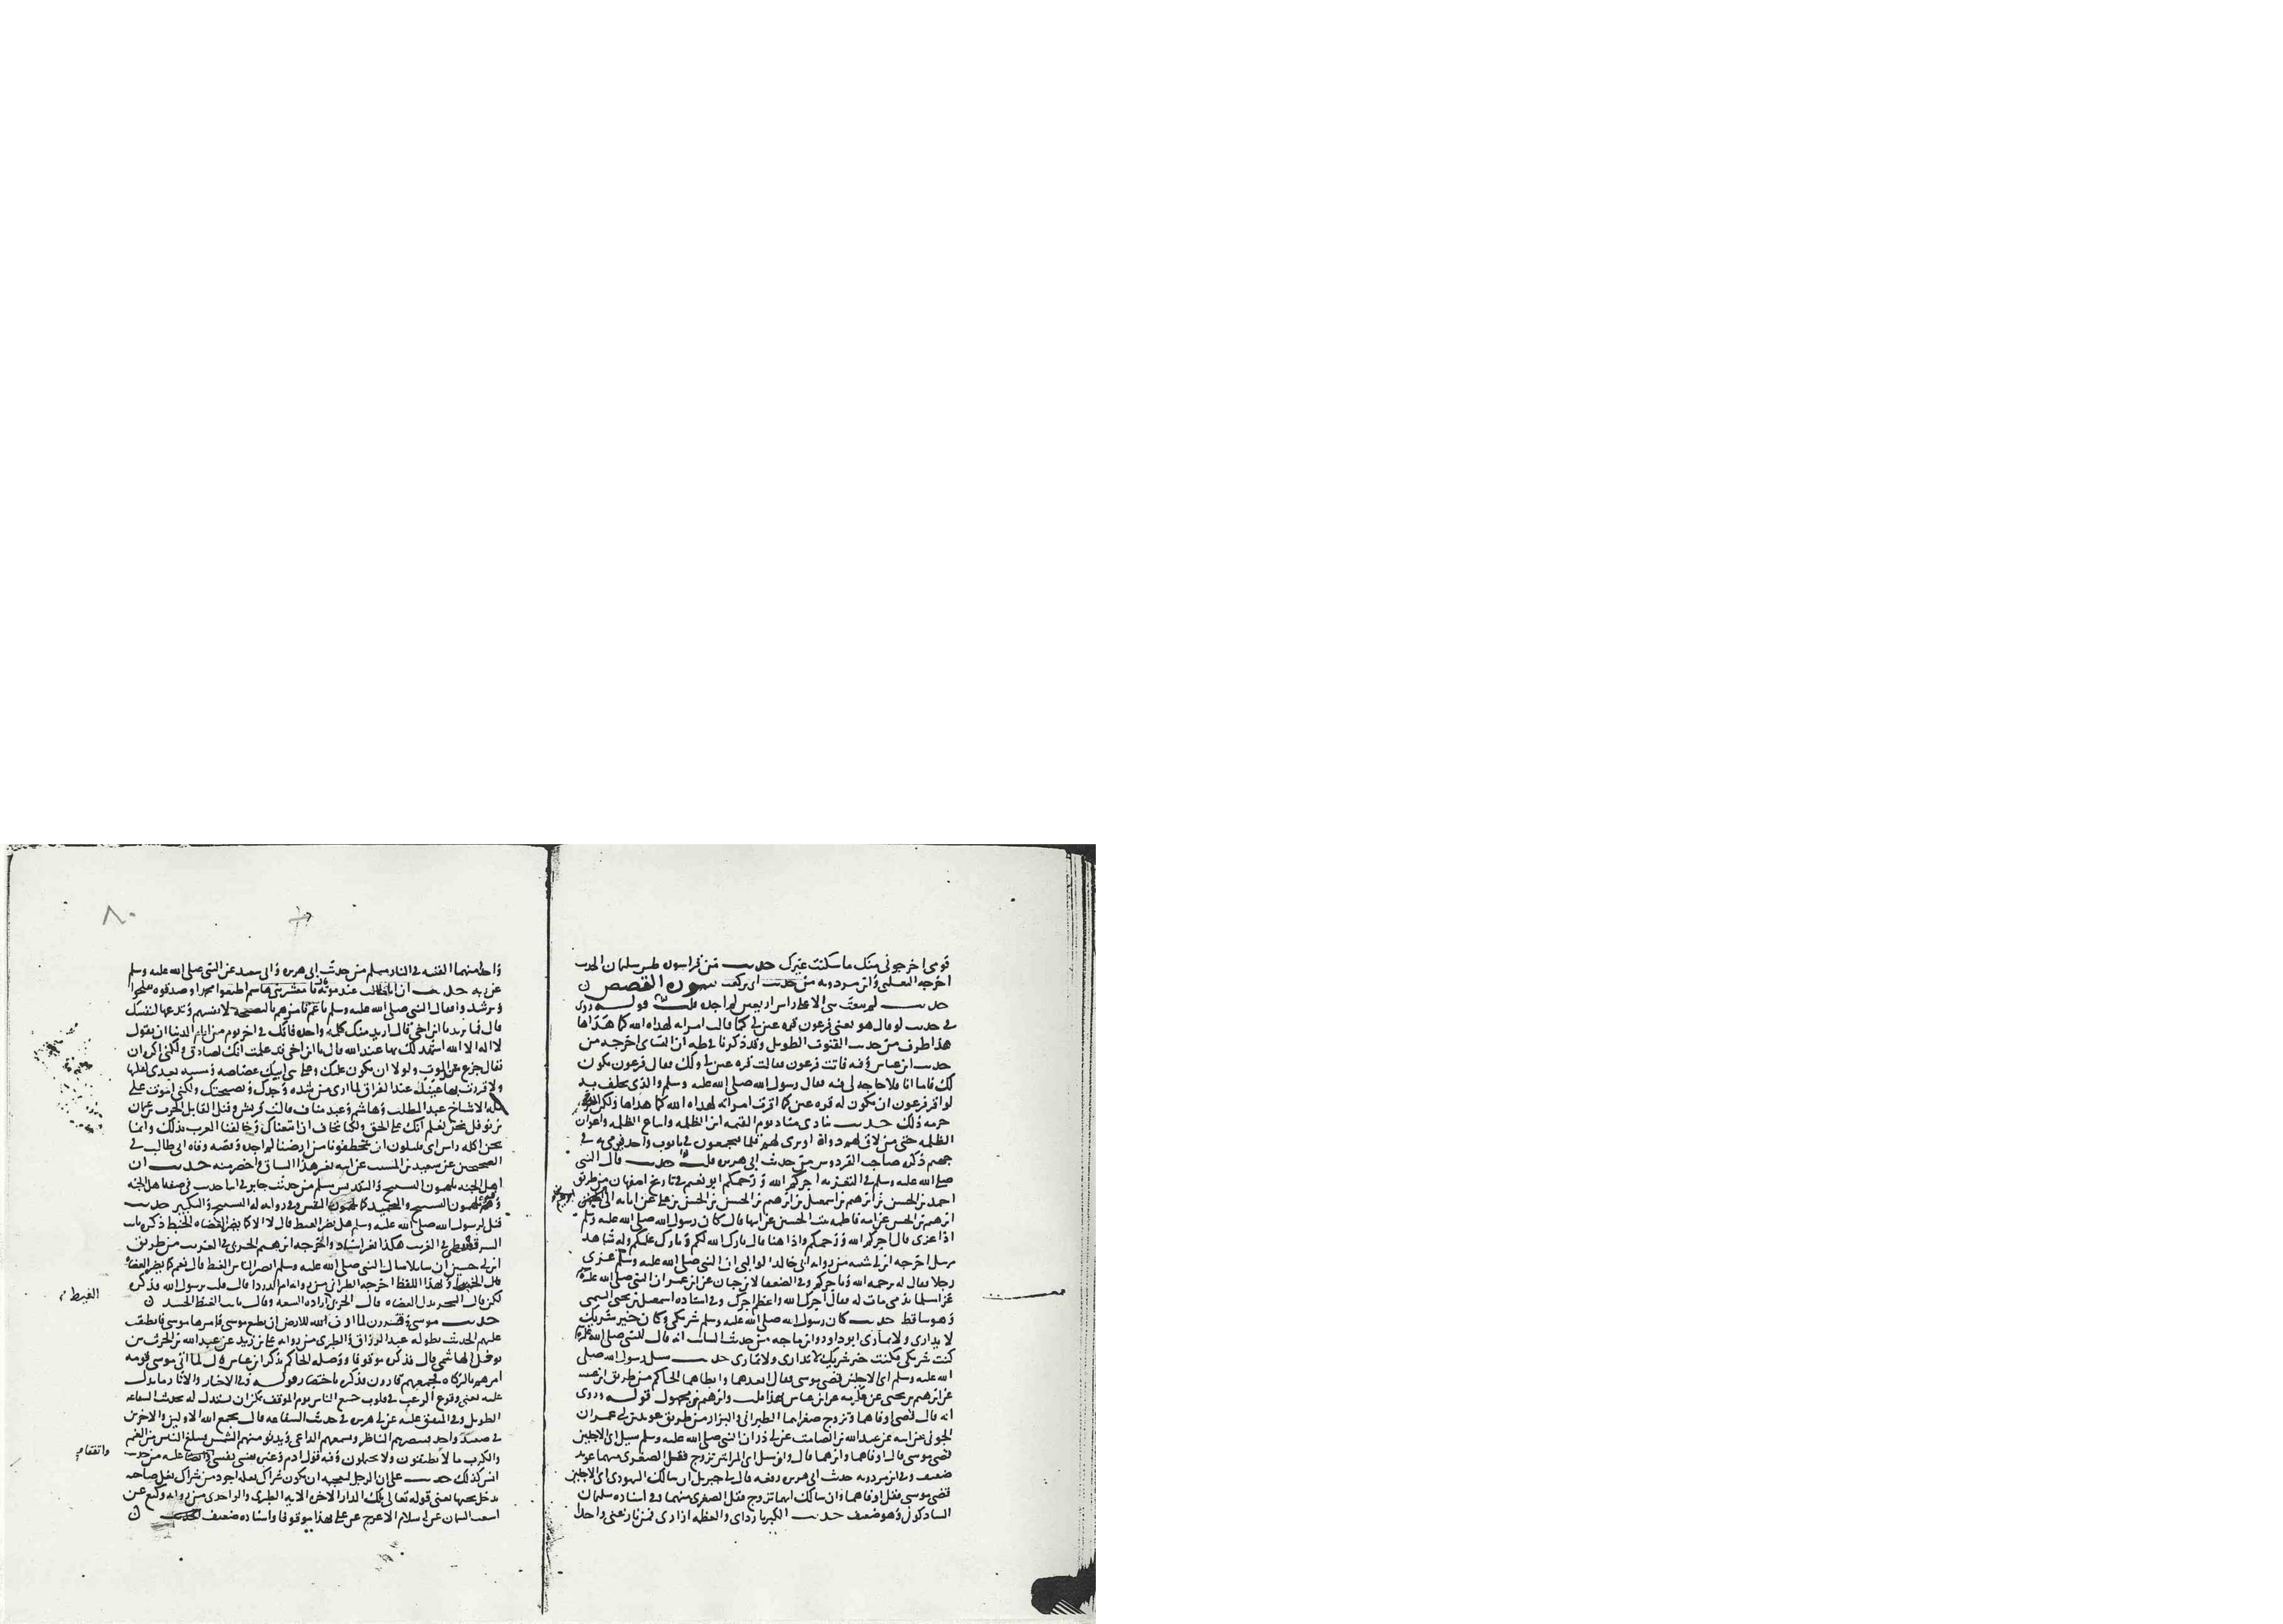 قومى اخرجونى منك ما سكنت غيرك حديث من قرا سورة طس سليمان الحديث
اخرجه الثعلبى وابن مردويه من حديث ابى بن كعب سورة القصص ن
حديث لم يبعث نبى الا على راس اربعين لم اجده قلت قوله روى
فى حديث لو قال هو يعنى فرعون قرة عين لى كما قالت امراته لهداه الله كما هداها
هذا طرف من حديث القنوت الطويل وقد ذكرنا فى طه ان النساى اخرجه من
حديث ابن عباس وفيه فاتت فرعون فقالت قرة عين لى ولك فقال فرعون يكون
لك فاما انا فلا حاجة لى فيه فقال رسول الله صلى الله عليه وسلم والذى يحلف به
لو اقر فرعون ان يكون له قرة عين كما اقرت امراته لهداه الله كما هداها ولكن الله
حرمه ذلك حديث ينادى مناد يوم القيمة اين الظلمة واشياع الظلمة واعوان
الظلمة حتى من لاق لهم دواة او برى لهم قلما فيجمعون فى تابوت واحد فيرمى به فى
جهنم ذكره صاحب الفردوس من حديث ابى هريرة قلت حديث قال النبى
صلى الله عليه وسلم فى التعزية اجركم الله ورحمكم ابو نعيم فى تاريخ اصفهان من طريق
احمد بن الحسن بن ابرهيم بن اسمعيل بن ابرهيم بن الحسن بن الحسن بن على عن ابائه الى
ابرهيم بن الحسن عن امه فاطمة بنت الحسين عن ابيها قال كان رسول الله صلى الله عليه وسلم
اذا عزى قال اجركم الله ورحمكم واذا هنا قال بارك الله لكم وبارك عليكم وله شاهد
مرسل اخرجه ابن ابى شيبة من رواية ابى خالد الوالبى ان النبى صلى الله عليه وسلم عزى
رجلا فقال له يرحمه الله وياجركم وفى الضعفا لابن حبان عن ابن عمر ان النبى صلى الله عليه
عزا مسلما بذمى مات له فقال اجرك الله واعظم اجرك وفى اسناده اسمعيل بن يحيى التيمى
وهو ساقط حديث كان رسول الله صلى الله عليه وسلم شريكى وكان خير شريك
لا يدارى ولا يمارى ابو داود وابن ماجه من حديث السائب انه قال للنبى صلى الله عليه
كنت شريكى فكنت خير شريك لا تدارى ولا تمارى حديث سيل رسول الله صلى
الله عليه وسلم اى الاجلين قضى موسى فقال ابعدهما وابطاهما الحاكم من طريق ابن عيينة
عن ابرهيم بن يحيى عن عكرمة عن ابن عباس بهذا قلت وابرهيم مجهول قوله وروى
انه قال قضى اوفاهما وتزوج صغراهما الطبرانى والبزار من طريق عويد بن ابى عمران
الجونى عن ابيه عن عبد الله بن الصامت عن ابى ذر ان النبى صلى الله عليه وسلم سيل اى الاجلين
قضى موسى قال اوفاهما وابرهما قال وان سيل اى المراتين تزوج فقل الصغرى منهما عويد
ضعيف وفى ابن مردويه حديث ابى هريرة رفعه قال لى جبريل ان سالك اليهودى اى الاجلين
قضى موسى فقل اوفاهما وان سالك ايهما تزوج فقل الصغرى منهما وفى اسناده سليمان
الشاذكونى وهو ضعيف حديث الكبريا رداى والعظمة ازارى فمن نازعنى واحدا
٨٠
واحدا منهما القيته فى النار مسلم من حديث ابى هريرة وابى سعيد عن النبى صلى الله عليه وسلم
عن ربه حديث ان ابا طالب عند موته قال يا معشر بنى هاشم اطيعوا محمدا وصدقوه تفلحوا
وترشدوا فقال النبى صلى الله عليه وسلم يا عم تامرهم بالنصيحة لانفسهم وتدعها لنفسك
قال فما تريد يا ابن اخى قال اريد منك كلمة واحدة فانك فى اخر يوم من ايام الدنيا ان تقول
لا اله الا الله اشهد لك بها عند الله قال يا ابن اخى قد علمت انك لصادق ولكنى اكره ان
يقال جزع عند الموت ولولا ان يكون عليك وعلى بنى ابيك غضاضة ومسبة بعدى لقلتها
ولاقررت بها عينك عند الفراق لما ارى من شدة وجدك ونصيحتك ولكنى اموت على
ملة الاشياخ عبد المطلب وهاشم وعبد مناف قالت قريش وقيل القايل الحرث بن عثمان
بن نوفل نحن نعلم انك على الحق ولكنا نخاف ان اتبعناك وخالفنا العرب بذلك وانما
نحن اكلة راس اى قليلون ان يتخطفونا من ارضنا لم اجده وقصة وفاة ابى طالب فى
الصحيحين عن سعيد بن المسيب عن ابيه بغير هذا السياق واخصر منه حديث ان
اهل الجنة يلهمون التسبيح والتقديس مسلم من حديث جابر فى اثنا حديث فى صفة اهل الجنة
وفيه يلهمون التسبيح والتحميد كما يلهمون النفس وفى رواية له التسبيح والتكبير حديث
قيل لرسول الله صلى الله عليه وسلم هل يضر الغبط قال لا الا كما يضر العضاه الخبط ذكره ثابت
السرقسطى فى الغريب هكذا بغير اسناد واخرجه ابرهيم الحربى فى الغريب من طريق
ابن ابى حسين ان سايلا سال النبى صلى الله عليه وسلم ايضر الناس الغبط قال نعم كما يضر العضاه
الخبط وبهذا اللفظ اخرجه الطبرانى من رواية ام الدردا قالت قلت يرسول الله فذكره
لكن قال الشجر بدل العضاه قال الحربى اراد السعة وقال ثابت الغبط الحسد ن
حديث موسى وقرون لما اذن الله للارض ان تطيع موسى فامرها موسى فانطبقت
عليهم الحديث بطوله عبد الرزاق والطبرى من رواية على بن زيد عن عبد الله بن الحرث بن
نوفل الهاشمى قال فذكره موقوفا ووصله الحاكم بذكر ابن عباس قال لما اتى موسى قومه
امرهم بالزكاة فجمعهم قارون فذكره باختصار قوله وفى الاخبار والاثار ما يدل
عليه يعنى وقوع الرعب فى قلوب جميع الناس يوم الموقف يمكن ان يستدل له بحديث الشفاعة
الطويل وفى المتفق عليه عن ابى هريرة فى حديث الشفاعة قال يجمع الله الاولين والاخرين
فى صعيد واحد يبصرهم الناظر ويسمعهم الداعى ويدنو منهم الشمس فيبلغ الناس من الغم
والكرب ما لا يطيقون ولا يحتملون وفيه قول ادم وغيره نفسى نفسى عليه من حديث
انس كذلك حديث على ان الرجل ليعجبه ان يكون شراك نعله اجود من شراك نعل صاحبه
فدخل تحتها يعنى قوله تعالى تلك الدار الاخرة الاية الطبرى والواحدى من رواية وكيع عن
اشعث السمان عن ابى سلام الاعرج عن على بهذا موقوفا واسناده ضعيف ن
الغبط
واتفقا